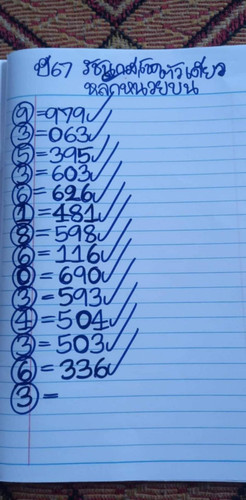 ปี67 รัฐบาลโชคตัวเดียว
หลักหน่วยบน
9=979✓
3=063✓
5=395✓
3=603✓
6=626✓
1=481✓
8=598✓
6=116✓
0=690✓
3=593✓
4=504✓
3=503✓
6=336✓
3=